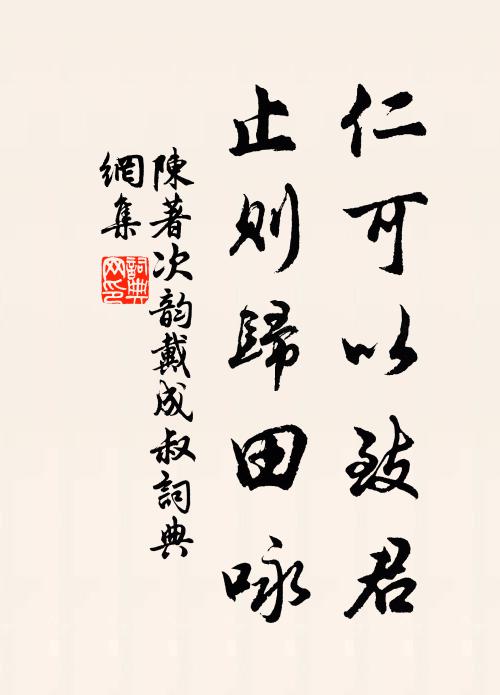 仁可以致君
止则歸田咏
陳著次韵戴成叔詞典
網集
詞典網印